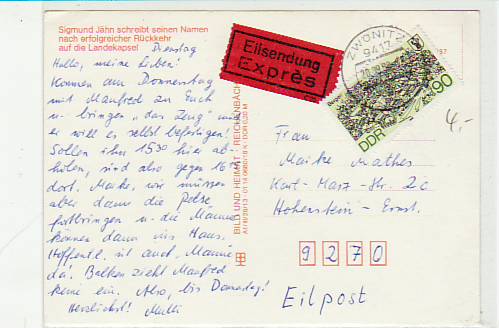 Sigmund Jähn schreibt seinen Namen
nach erfolgreicher Rückkehr
auf die Landekapsel
Dienstag
Hallo, meine Lieben!
Kommen am Donnerstag
mit Manfred zu Euch
u- bringen "das Zeug" und
er will es selbst befestigen!
Sollen ihn 15³⁰ hier ab-
holen, sind also gegen 16⁰⁰
dort. Maike, wir müssen
aber dann die Pelze
fortbringen u- die Männer
können dann ins Haus.
Hoffentl. ist auch
da! Balken zieht Manfred
keine ein. Also, bis Donnerstag!
Herzlichst! Mutti
Eilsendung
Exprès
ZWÖNITZ
9417
DDR
90
4,-
BILD UND HEIMAT · REICHENBACH
Frau
Maike Mathes
Karl-Marx-Str. 2c
Hohenstein-Ernst.
9270
Eilpost